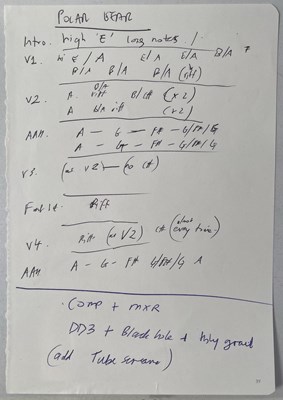 POLAR BEAR
Intro. High 'E' long notes /
V1. Hi E / A E/A E/A B/A
B/A B/A B/A (riff)
D/A
V2. A riff B/C# (x2)
A B/A riff (x2)
AAH. A - G - F# - G/F#/G
A - G - F# - G/F#/G
V3. (as V2) - (no C#)
Riff
V4. Riff (as V2) C# (almost every time)
AAH A - G - F# G/F#/G A
· COMP + MXR
DD3 + Black hole + Holy grail
(add Tube screamer)